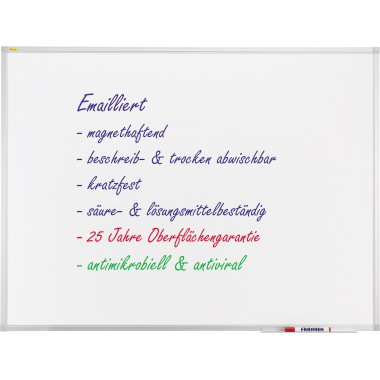 Emailliert
- magnethaftend
- beschreib- & trocken abwischbar
- kratzfest
- säure- & lösungsmittelbeständig
- 25 Jahre Oberflächengarantie
- antimikrobiell & antiviral
FRANKEN